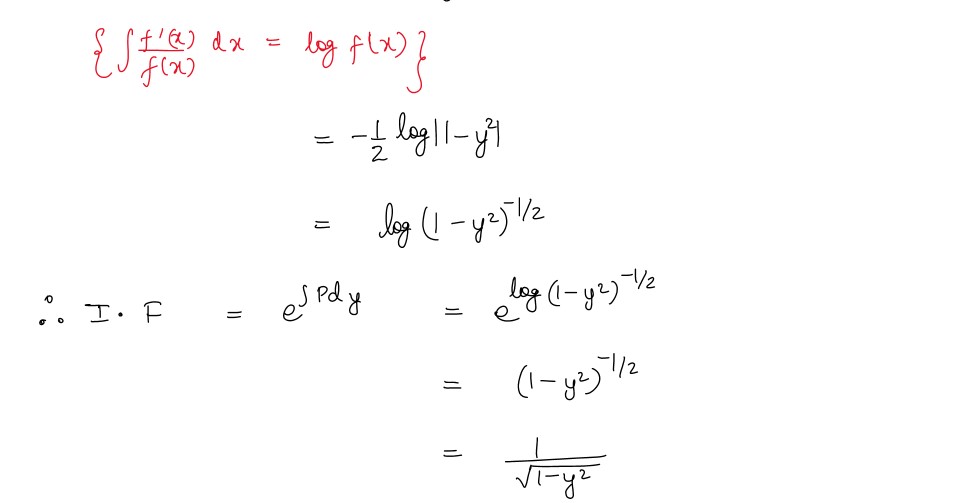 { ∫ f'(x)/f(x) dx = log f(x) }
= -1/2 log|1-y²|
= log (1-y²)^-1/2
∴ I. F = e^∫Pdy = e^log(1-y²)^-1/2
= (1-y²)^-1/2
= 1/√1-y²